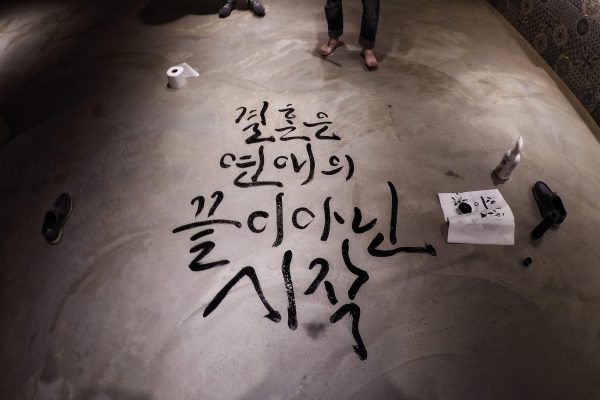 결혼은
연애의
끝이아닌
시작